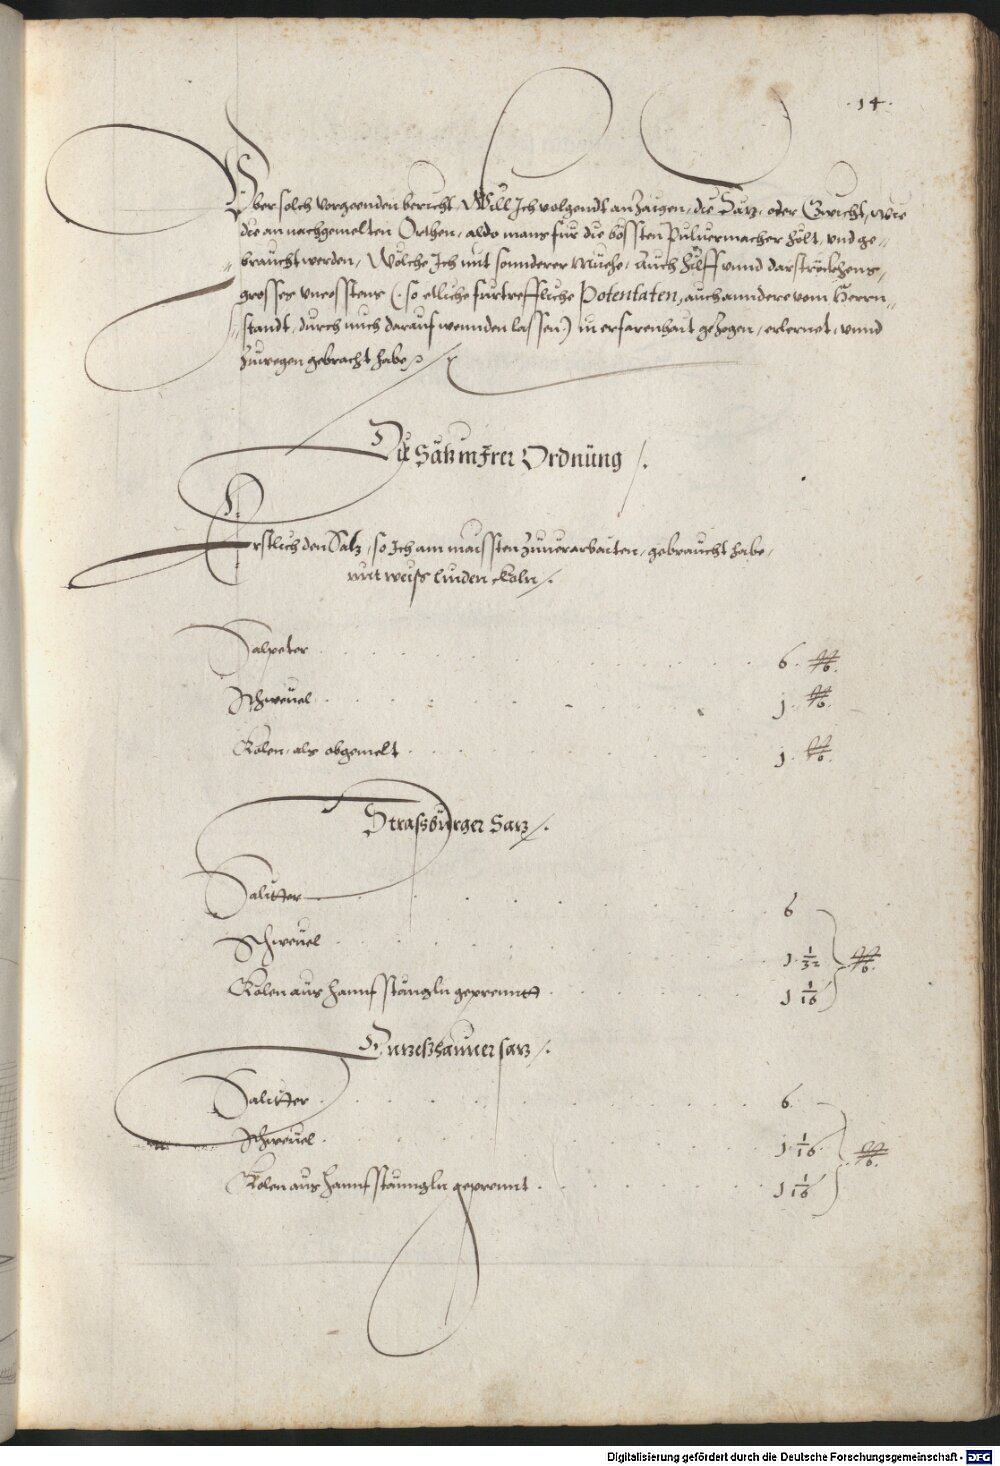 ·14·
Über solch vorgeenden bericht, Will Ich volgendt anzaigen, die Särz, oder Gwicht, wie
die an nachgemelten Orthen, aldo mans fur die bössten Puluermacher helt, vnd ge-
braucht werden, Wölche Ich mit sonnderer müehe, auch hilff vnnd darströckhens,
grosses vncosstens (so etliche furtreffliche Potentaten, auch anndere vom Herrn
standt, durch mich darauf wennden lassen) in erfarenhait gezogen, erlernet, vnnd
zuwegen gebracht habe
Die Säk in Irer Ordnüng /.
Erstlich den Satz, so Ich am maissten zuuerarbaiten, gebraucht habe,
mit weiss linden Koln /.
Salpeter . . . 6. ℔.
Schweüel . . . j. ℔.
Kolen, als obgemelt . . . j. ℔.
Strassbürger Sarz /.
Saliter . . . 6
Schweüel . . . j. 1/32 ℔.
Kolen aüs hannfstänngln geprennt . . . j 1/16
Saliter . . . 6
Schweüel . . . j. 1/16 ℔.
Kolen aus hannfstänngln geprennt . . . j 1/16
Digitalisierung gefördert durch die Deutsche Forschungsgemeinschaft - DFG